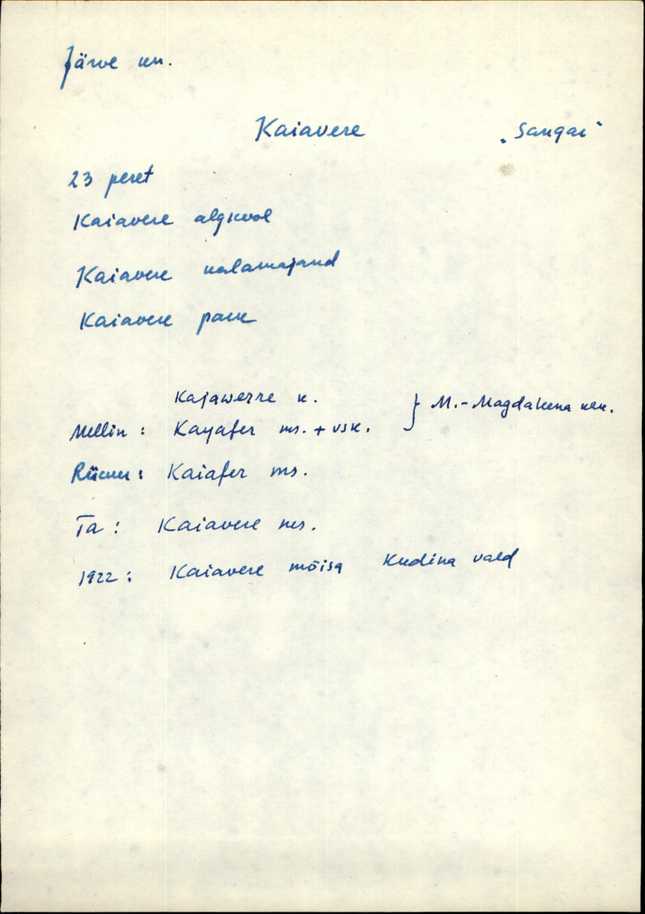 Järve kn.
Kaiavere „Sangar"
23 peret
Kaiavere algkool
Kaiavere kalamajand
Kaiavere park
Kajawerre k.
Mellin: Kayafer ms. + vsk. } M.-Magdaleena khk.
Rücker: Kaiafer ms.
Ta: Kaiavere ms.
1922: Kaiavere mõisa Kudina vald